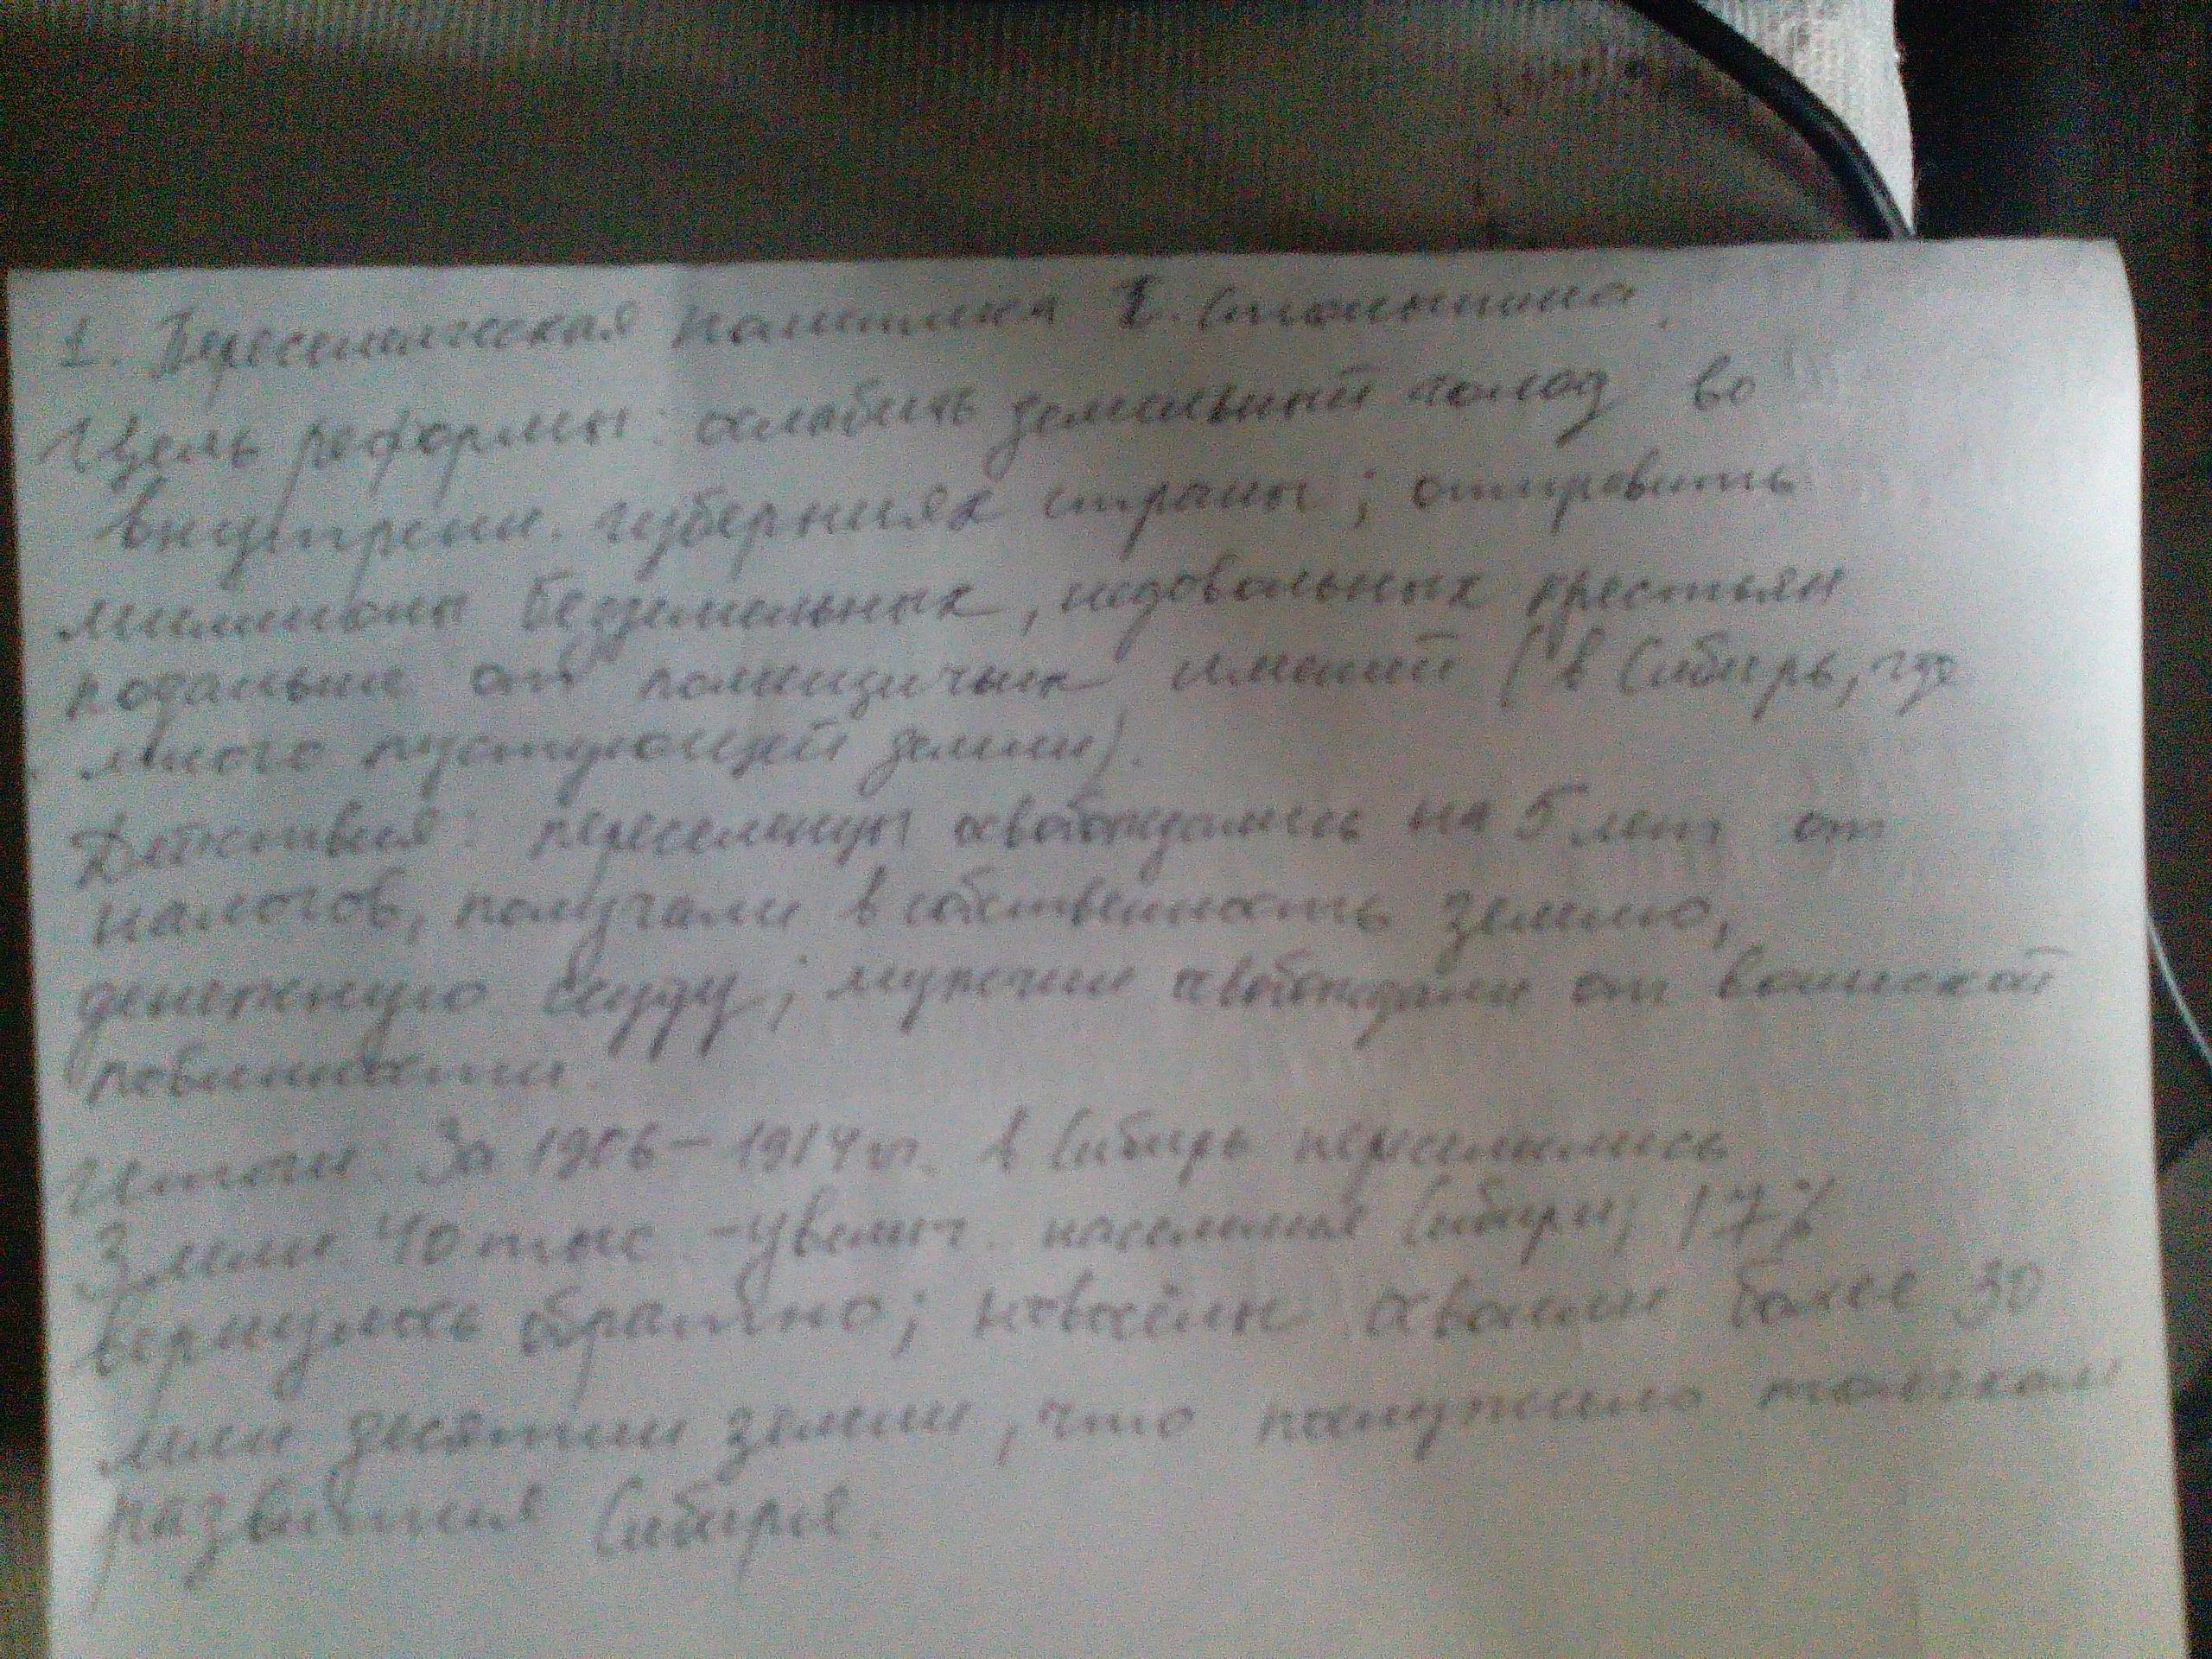 1. Переселенческая политика П. Столыпина.
Цель реформы: ослабить земельный голод во
внутренн. губерниях страны; отправить
миллионы безземельных, недовольных крестьян
подальше от помещичьих имений (в Сибирь, где
много пустующей земли).
Действия: переселенцы освобождались на 5 лет от
налогов, получали в собственность землю,
денежную ссуду; мужчин освобождали от воинской
повинности.
Итоги: За 1906-1914 гг. в Сибирь переселились
3 млн 40 тыс. - увелич. населения Сибири; 17%
вернулось обратно; новосёлы освоили более 30
млн десятин земли, что послужило толчком
развития Сибири.